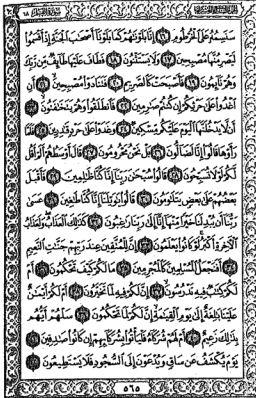 سَنَسِمُهُ عَلَى الْخُرْطُومِ ١٦ إِنَّا بَلَوْنَاهُمْ كَمَا بَلَوْنَا أَصْحَابَ الْجَنَّةِ إِذْ أَقْسَمُوا
لَيَصْرِمُنَّهَا مُصْبِحِينَ ١٧ وَلَا يَسْتَثْنُونَ ١٨ فَطَافَ عَلَيْهَا طَائِفٌ مِّن رَّبِّكَ
وَهُمْ نَائِمُونَ ١٩ فَأَصْبَحَتْ كَالصَّرِيمِ ٢٠ فَتَنَادَوْا مُصْبِحِينَ ٢١ أَنِ
اغْدُوا عَلَى حَرْثِكُمْ إِن كُنتُمْ صَارِمِينَ ٢٢ فَانطَلَقُوا وَهُمْ يَتَخَافَتُونَ ٢٣
أَن لَّا يَدْخُلَنَّهَا الْيَوْمَ عَلَيْكُم مِّسْكِينٌ ٢٤ وَغَدَوْا عَلَى حَرْدٍ قَادِرِينَ ٢٥ فَلَمَّا
رَأَوْهَا قَالُوا إِنَّا لَضَالُّونَ ٢٦ بَلْ نَحْنُ مَحْرُومُونَ ٢٧ قَالَ أَوْسَطُهُمْ أَلَمْ أَقُل
لَّكُمْ لَوْلَا تُسَبِّحُونَ ٢٨ قَالُوا سُبْحَانَ رَبِّنَا إِنَّا كُنَّا ظَالِمِينَ ٢٩ فَأَقْبَلَ
بَعْضُهُمْ عَلَى بَعْضٍ يَتَلَاوَمُونَ ٣٠ قَالُوا يَا وَيْلَنَا إِنَّا كُنَّا طَاغِينَ ٣١ عَسَى
رَبُّنَا أَن يُبْدِلَنَا خَيْرًا مِّنْهَا إِنَّا إِلَى رَبِّنَا رَاغِبُونَ ٣٢ كَذَلِكَ الْعَذَابُ وَلَعَذَابُ
الْآخِرَةِ أَكْبَرُ لَوْ كَانُوا يَعْلَمُونَ ٣٣ إِنَّ لِلْمُتَّقِينَ عِندَ رَبِّهِمْ جَنَّاتِ النَّعِيمِ
٣٤ أَفَنَجْعَلُ الْمُسْلِمِينَ كَالْمُجْرِمِينَ ٣٥ مَا لَكُمْ كَيْفَ تَحْكُمُونَ ٣٦ أَمْ
لَكُمْ كِتَابٌ فِيهِ تَدْرُسُونَ ٣٧ إِنَّ لَكُمْ فِيهِ لَمَا تَخَيَّرُونَ ٣٨ أَمْ لَكُمْ أَيْمَانٌ
عَلَيْنَا بَالِغَةٌ إِلَى يَوْمِ الْقِيَامَةِ إِنَّ لَكُمْ لَمَا تَحْكُمُونَ ٣٩ سَلْهُمْ أَيُّهُم
بِذَلِكَ زَعِيمٌ ٤٠ أَمْ لَهُمْ شُرَكَاءُ فَلْيَأْتُوا بِشُرَكَائِهِمْ إِن كَانُوا صَادِقِينَ ٤١
يَوْمَ يُكْشَفُ عَن سَاقٍ وَيُدْعَوْنَ إِلَى السُّجُودِ فَلَا يَسْتَطِيعُونَ ٤٢
٥٦٥